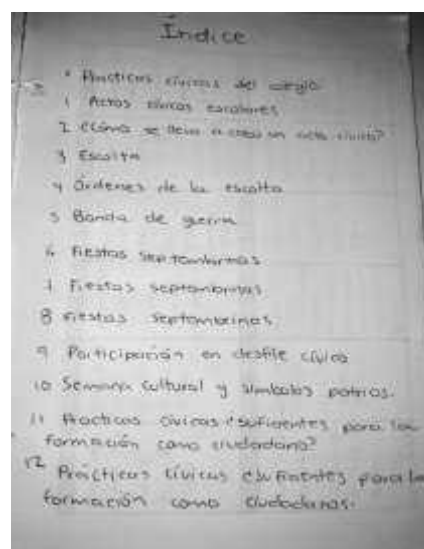 Índice
* Practicas cívicas del colegio
1 Actos cívicos escolares
2 ¿Cómo se lleva a cabo un acto cívico?
3 Escolta
4 Órdenes de la escolta
5 Banda de guerra
6 Fiestas Septembrinas
7 Fiestas septembrinas
8 Fiestas septembrinas
9 Participación en desfile cívico
10 Semana cultural y símbolos patrios.
11 Practicas cívicas ¿suficientes para la
formación como ciudadano?
12 Prácticas cívicas suficientes para la
formación como ciudadanos.